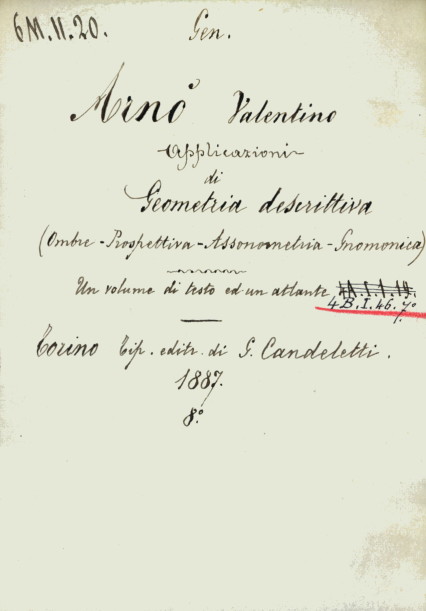 6M.II.20. Gen.
Arnò Valentino
Applicazioni
di
Geometria descrittiva
(Ombre - Prospettiva - Assonometria - Gnomonica)
Un volume di testo ed un atlante
4.B.I.46.
Torino Tip. editr. di G. Candeletti.
1887.
8.°